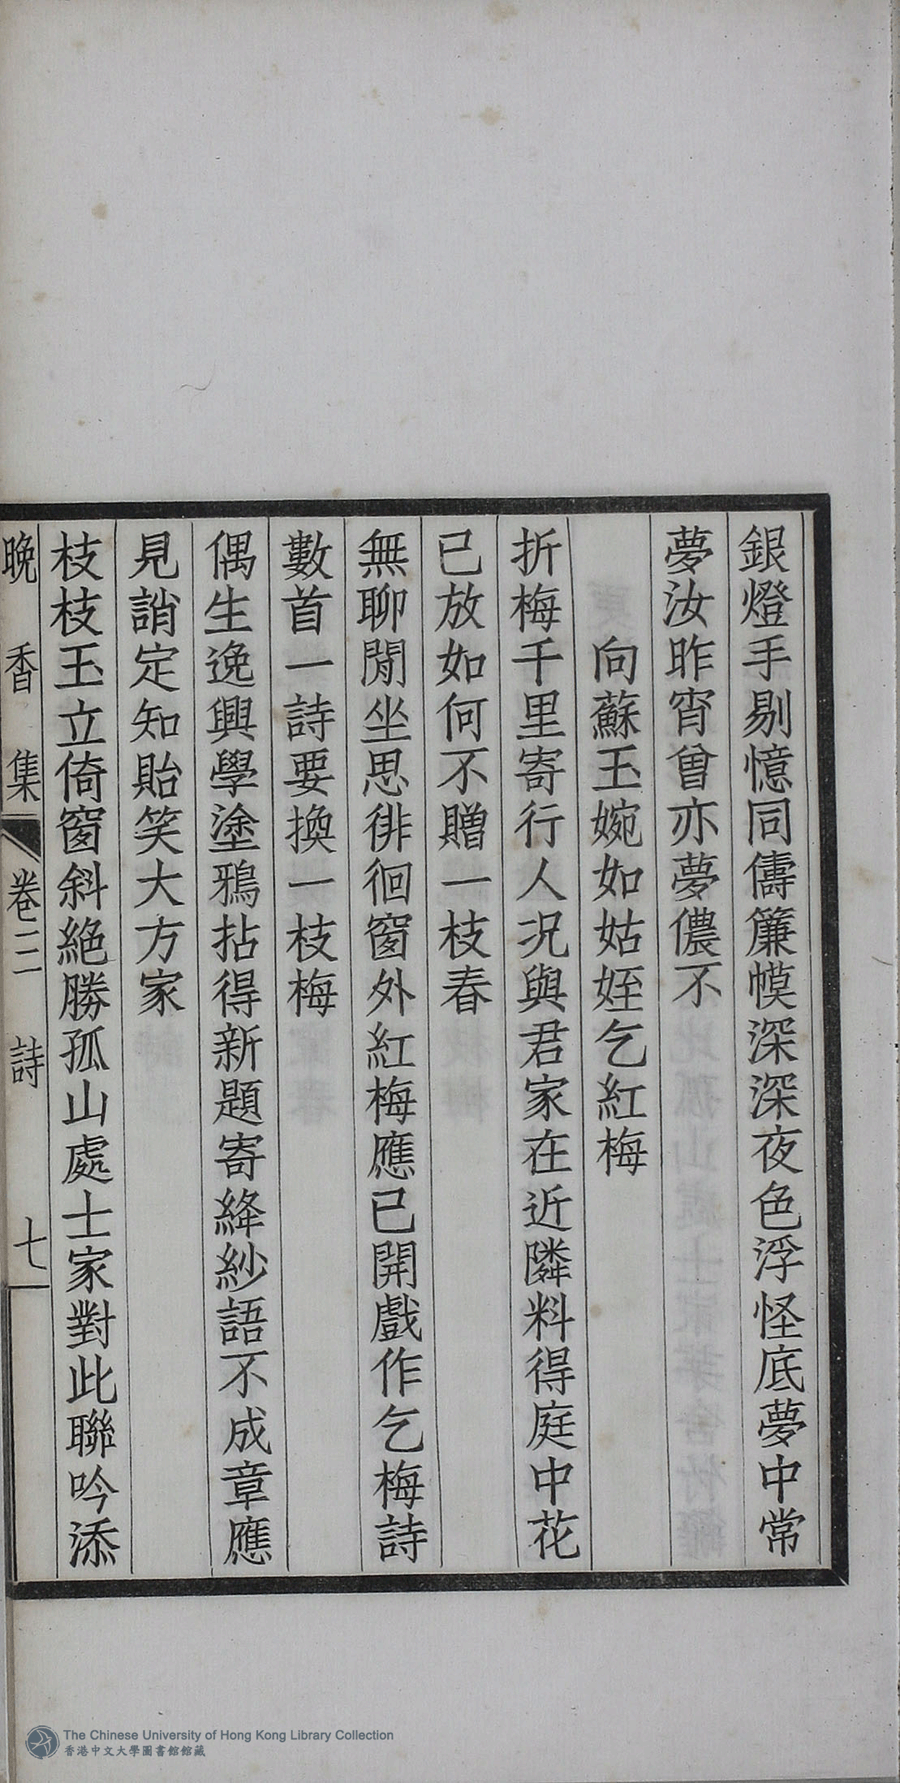 銀燈手剔憶同儔簾幙深深夜色浮怪底夢中常
夢汝昨宵曾亦夢儂不
向蘇玉婉如姑姪乞紅梅
折梅千里寄行人况與君家在近隣料得庭中花
已放如何不贈一枝春
無聊閒坐思徘徊窗外紅梅應已開戲作乞梅詩
數首一詩要換一枝梅
偶生逸興學塗鴉拈得新題寄絳紗語不成章應
見誚定知貽笑大方家
枝枝玉立倚窗斜絕勝孤山處士家對此聯吟添
晚香集 卷二 詩 七
The Chinese University of Hong Kong Library Collection
香港中文大學圖書館館藏